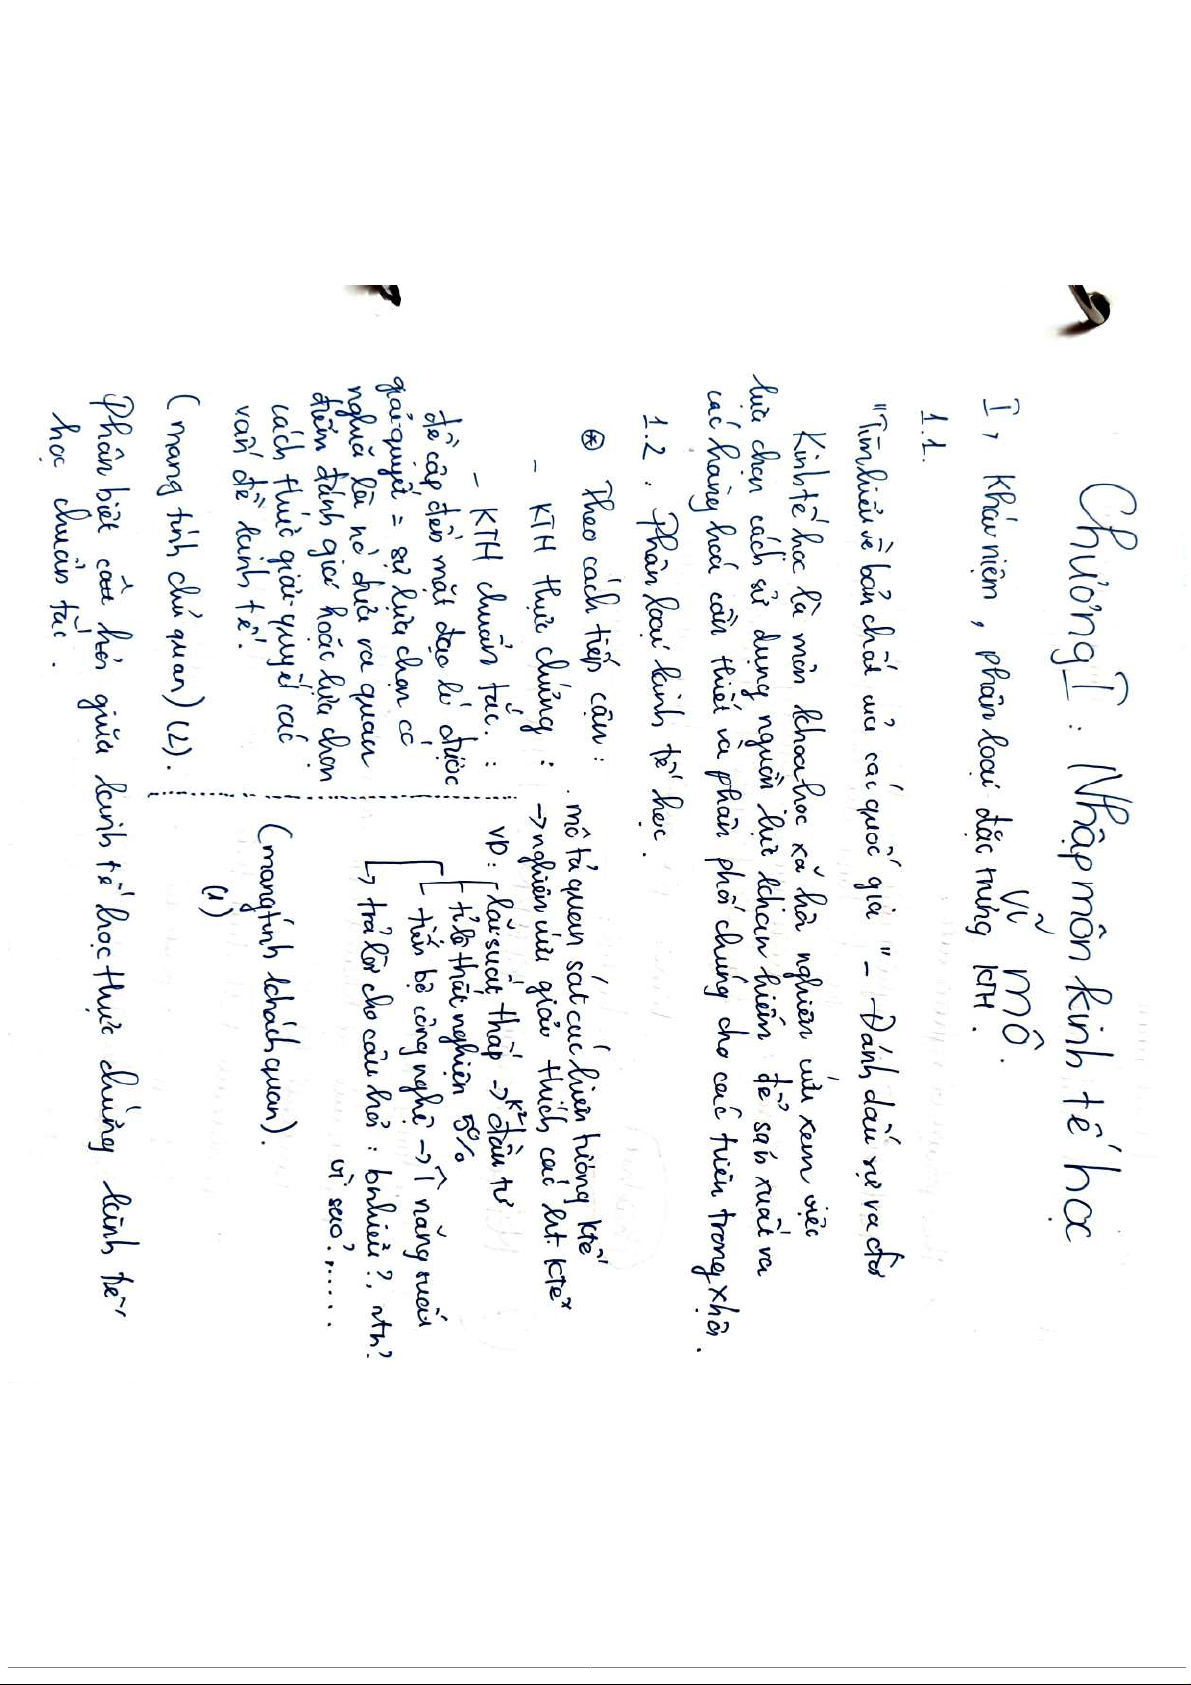 Chương I : Nhập môn kinh tế học
vĩ mô.
I, Khái niệm, phân loại đặc trưng KTH.
1.1.
"Tìm hiểu về bản chất của các quốc gia" - Đánh dấu sự ra đời
Kinh tế học là môn khoa học xã hội nghiên cứu xem việc
lựa chọn cách sử dụng nguồn lực khan hiếm để sản xuất ra
các hàng hoá cần thiết và phân phối chúng cho các thiên trong xhội.
1.2. Phân loại kinh tế học.
⊛ Theo cách tiếp cận:
- KTH thực chứng : . mô tả quan sát các hiện tượng Ktế
→ nghiên cứu giải thích các ht. Ktế
VD: lãi suất thấp → k² đầu tư
tỉ lệ thất nghiệp 5%
tiến bộ công nghệ → ↑ năng suất
↳ trả lời cho câu hỏi : bnhiêu?, ntn?
vì sao?,......
(mang tính khách quan).
(1)
- KTH chuẩn tắc. :
đề cập đến mặt đạo lí được
giải quyết = sự lựa chọn có
nghĩa là nó đưa ra quan
điểm đánh giá hoặc lựa chọn
cách thức giải quyết các
vấn đề kinh tế.
(mang tính chủ quan) (2).
Phân biệt câu hỏi giữa kinh tế học thực chứng kinh tế
học chuẩn tắc.